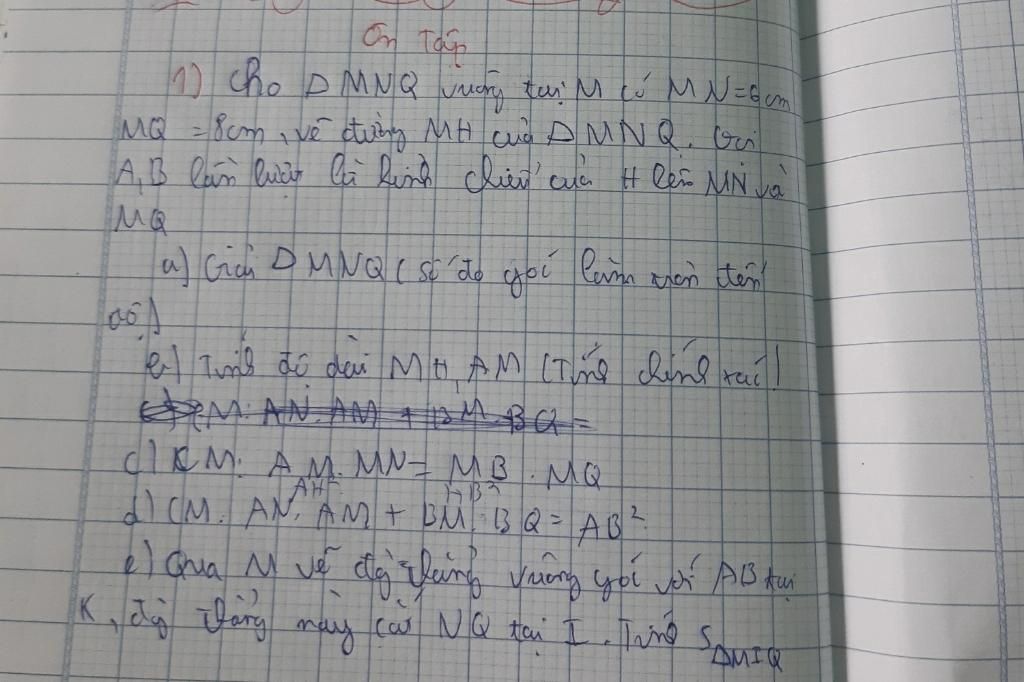 Ôn Tập
1) Cho Δ MNQ vuông tại M có MN = 6cm
MQ = 8cm, vẽ đường MH của Δ MNQ. Gọi
A, B lần lượt là hình chiếu của H lên MN và
MQ
a) Giải Δ MNQ (số đo góc làm tròn đến
độ)
b) Tính độ dài MH, AM (Tính chính xác)
AN. AM + BM. BQ =
c) CM: AM. MN = MB. MQ
AH² HB²
d) CM: AN. AM + BM. BQ = AB²
e) Qua M vẽ đg thẳng vuông góc với AB tại
K, đg thẳng này cắt NQ tại I. Tính SΔMIQ